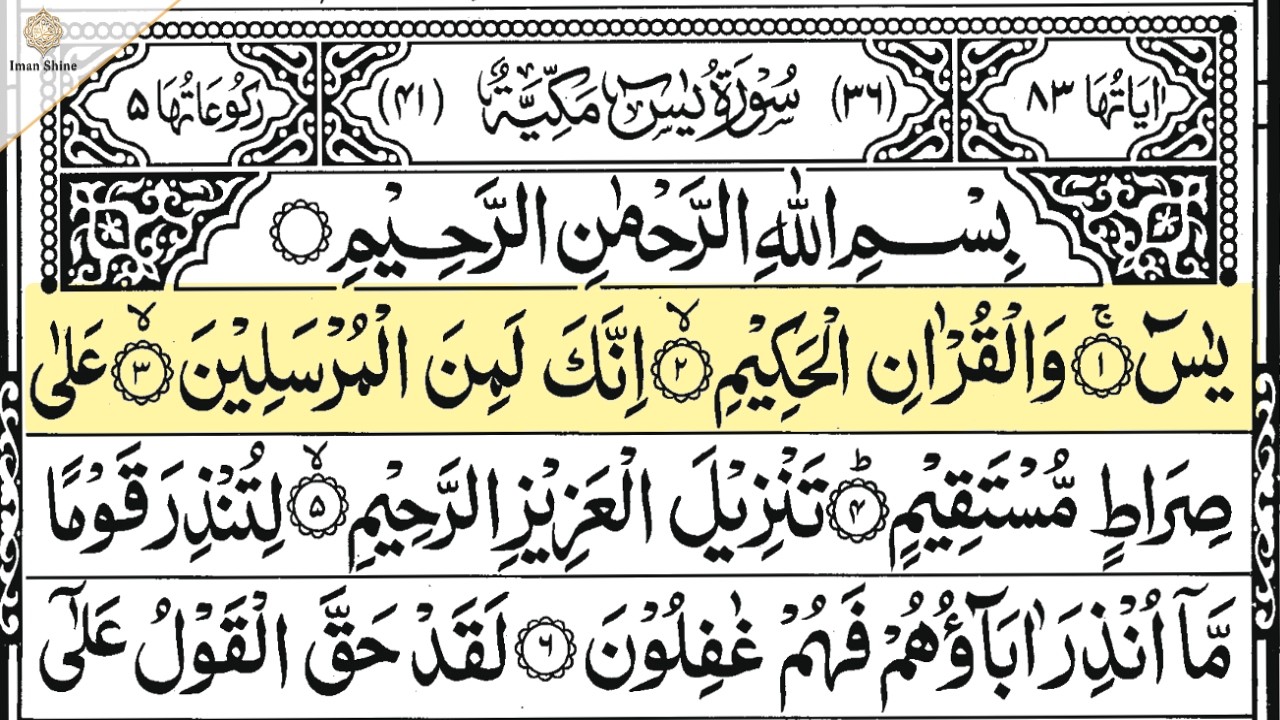 Iman Shine
اٰيَاتُهَا ٨٣ (٣٦) سُوْرَةُ يٰسٓ مَكِّيَّةٌ (٤١) رُكُوْعَاتُهَا ٥
بِسْمِ اللّٰهِ الرَّحْمٰنِ الرَّحِيْمِ
يٰسٓ ۚ ﴿١﴾ وَالْقُرْاٰنِ الْحَكِيْمِ ۙ ﴿٢﴾ اِنَّكَ لَمِنَ الْمُرْسَلِيْنَ ۙ ﴿٣﴾ عَلٰى
صِرَاطٍ مُّسْتَقِيْمٍ ؕ ﴿۴﴾ تَنْزِيْلَ الْعَزِيْزِ الرَّحِيْمِ ۙ ﴿۵﴾ لِتُنْذِرَ قَوْمًا
مَّاۤ اُنْذِرَ اٰبَآؤُهُمْ فَهُمْ غٰفِلُوْنَ ﴿۶﴾ لَقَدْ حَقَّ الْقَوْلُ عَلٰۤى